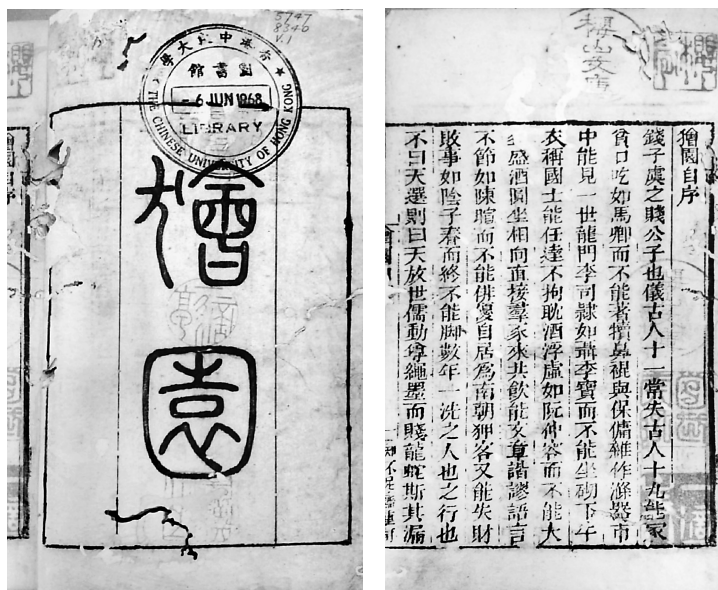 5747
8346
v.1
香港中文大學
圖書館
-6 JUN 1968
LIBRARY
THE CHINESE UNIVERSITY OF HONG KONG
獪園
櫻山文庫
獪園自序
錢子虞之賤公子也儀古人十一常失古人十九能家
貧口吃如馬卿而不能著犢鼻裩與保傭雜作滌器市
中能見一世龍門李司隸如聶李寶而不能坐砌下牛
衣稱國士能任達不拘耽酒浮虛如阮仲容而不能大
盛酒圍坐相向直接羣豕來共飲能文章諧謬語言
不節如陳暄而不能俳優自居爲南朝狎客又能失財
敗事如陰子春而終不能脚數年一洗之人也之行也
不曰天選則曰天放世儒動尊繩墨而賤龍蛇斯其漏